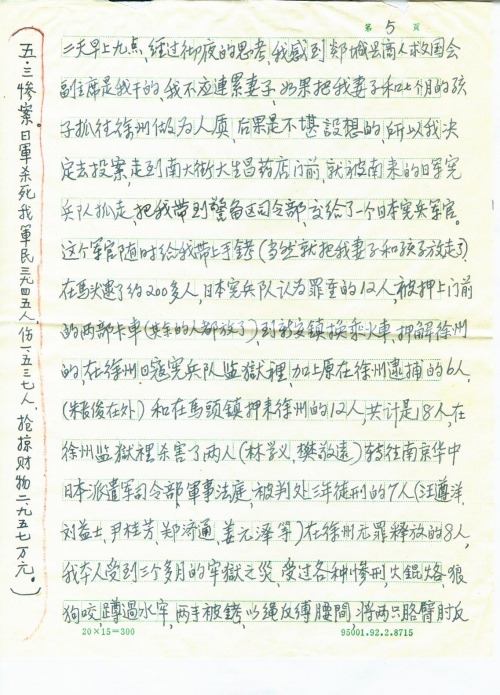 第 5 页
二天早上九点,经过彻夜的思考,我感到郯城县商人救国会
副主席是我干的,我不应連累妻子,如果把我妻子和七个月的孩
子抓往徐州做为人质,后果是不堪設想的,所以我决
定去投案,走到南大街大生昌药店门前,就被南来的日军宪
兵队抓走,把我带到警备区司令部,交给了一个日本宪兵军官。
这个军官随时给我带上手銬(当然就把我妻子和孩子放走了)
在馬头逮了约200多人,日本宪兵队认为罪重的12人,被押上门前
的两部卡車(其余的人都放了),到新安鎮换乘火車,押解徐州
的,在徐州日寇宪兵队监獄裡,加上原在徐州逮捕的6人,
(朱俊在外)和在馬頭鎮押来徐州的12人,共计是18人,在
徐州监獄裡杀害了两人(林学义,樊敬遠)转往南京华中
日本派遣军司令部軍事法庭,被判处三年徒刑的7人(汪遵洋,
刘益士,尹桂芳,郑济通,姜元泽等)在徐州无罪釋放的8人,
我本人受到三个多月的牢獄之災,受过各种惨刑,火錕烙,狼
狗咬,蹲過水牢,两手被銬,以绳反縛腰間,将两只胳臂肘反
20×15=300
95001.92.2.8715
五·三惨案日軍杀死我軍民三九四五人,伤一五三七人,抢掠财物二九五七万元。)